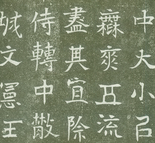 中大小呂
爽五流
盡其宜除
侍轉中散
城文憲王